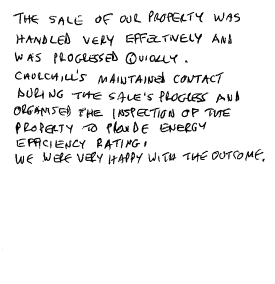 THE SALE OF OUR PROPERTY WAS
HANDLED VERY EFFECTIVELY AND
WAS PROGRESSED QUICKLY.
CHURCHILL'S MAINTAINED CONTACT
DURING THE SALE'S PROGRESS AND
ORGANISED THE INSPECTION OF THE
PROPERTY TO PROVIDE ENERGY
EFFICIENCY RATING.
WE WERE VERY HAPPY WITH THE OUTCOME.